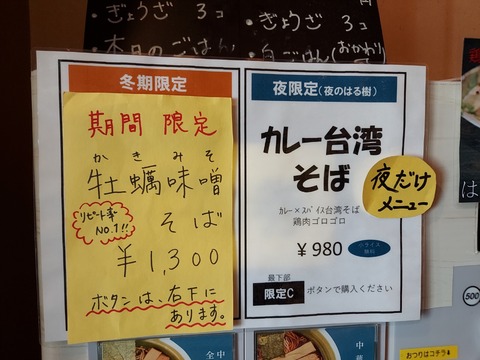 ・ぎょうざ 3コ
・本日のごはん
・ぎょうざ 3コ 円
・白ごはん(おかわり
冬期限定
期間 限定
かきみそ
牡蠣味噌
リピート率
NO.1!!
そば
¥1,300
ボタンは、右下に
あります。
夜限定(夜のはる樹)
カレー台湾
そば
カレー×スパイス台湾そば
鶏肉ゴロゴロ
¥980
小ライス
無料
最下部
限定C
ボタンで購入ください
夜だけ
メニュー
は
500
おつりはコチラ
全中
中華